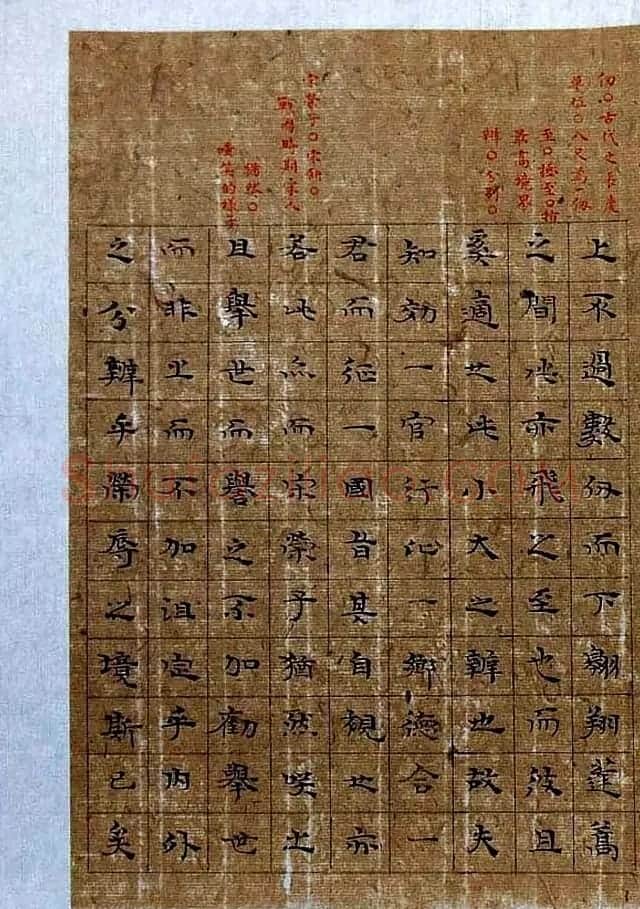 仞〇古代之長度
單位〇八尺為一仞
至〇極至〇指
最高境界
辨〇分別〇
宋榮子〇宋鈃〇
戰國時期宋人
猶然〇
嗤笑的樣子
上不過數仞而下翱翔蓬蒿
之間此亦飛之至也而彼且
奚適也此小大之辨也故夫
知効一官行比一鄉德合一
君而征一國者其自視也亦
若此而宋榮子猶然咲之
且舉世而譽之不加勸舉世
而非之而不加沮定乎内外
之分辨乎榮辱之境斯已矣